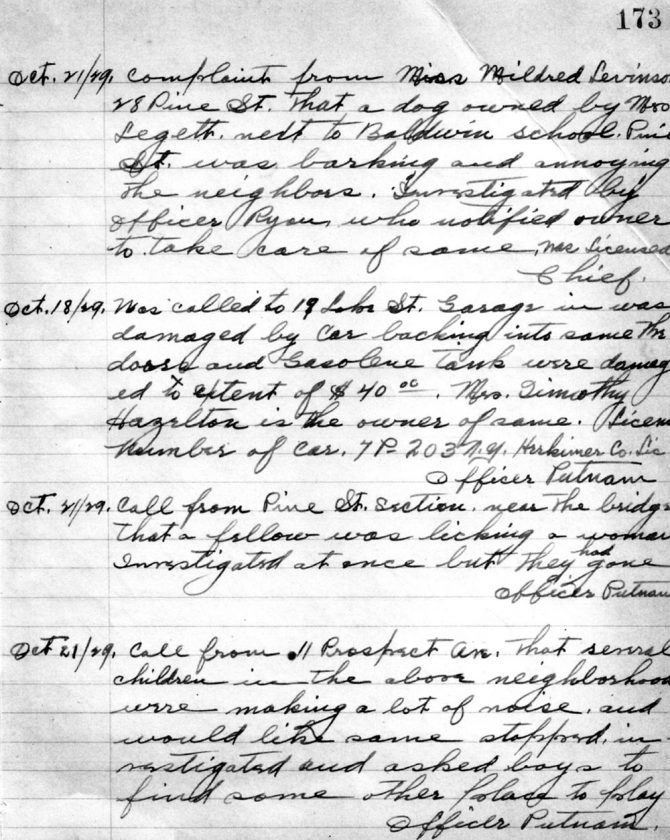 173
Oct. 21/29. Complaint from Miss Mildred Levinso
28 Pine St. that a dog owned by Mrs
Legett. next to Baldwin school. Pine
St. was barking and annoying
the neighbors. Investigated by
Officer Ryan, who notified owner
to take care of same, was Licensed
Chief.
Oct. 18/29. Was called to 19 Lake St. Garage in was
damaged by Car backing into same the
doors and Gasolene tank were damag
ed to extent of $40 00. Mrs. Timothy
Hazelton is the owner of same. Licen
Number of Car. 7P-203 N.Y. Herkimer Co. Lic
Officer Putnam
Oct. 21/29. Call from Pine St. Section. near the bridge
that a fellow was licking a woman
Investigated at once but they had gone
Officer Putnam
Oct 21/29. Call from 11 Prospect Av. that several
children in the above neighborhood
were making a lot of noise. and
would like same stopped. in
vestigated and asked boys to
find some other place to play
Officer Putnam.